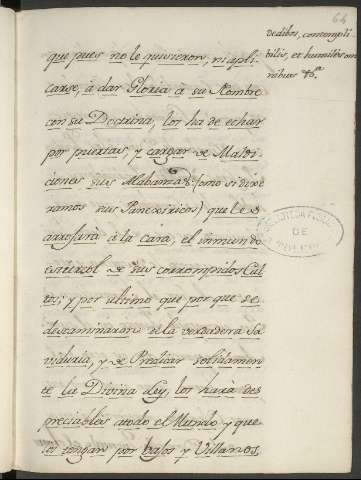 64
vedibos, contempti
bilés, et humilés om
nibus &.ª
que pues no le quisieron, ni apli
carse, à dar Gloria a su Nombre
con su Doctrina, los ha de echar
por puertas, y cargar de Maldi
ciones sus Alabanzas (como si dixe
ramos sus Panexiricos) que les
arrojarà à la cara, el inmundo
estiercol de sus corrompidos Cul
tos; y por ultimo que por que se
descaminaron de la verdadera Sa
viduria, y de Predicar solidamen
te la Divina Ley, los harà des
preciablés atodo el Mundo y que
los tengan por bajos y Villanos,
DE